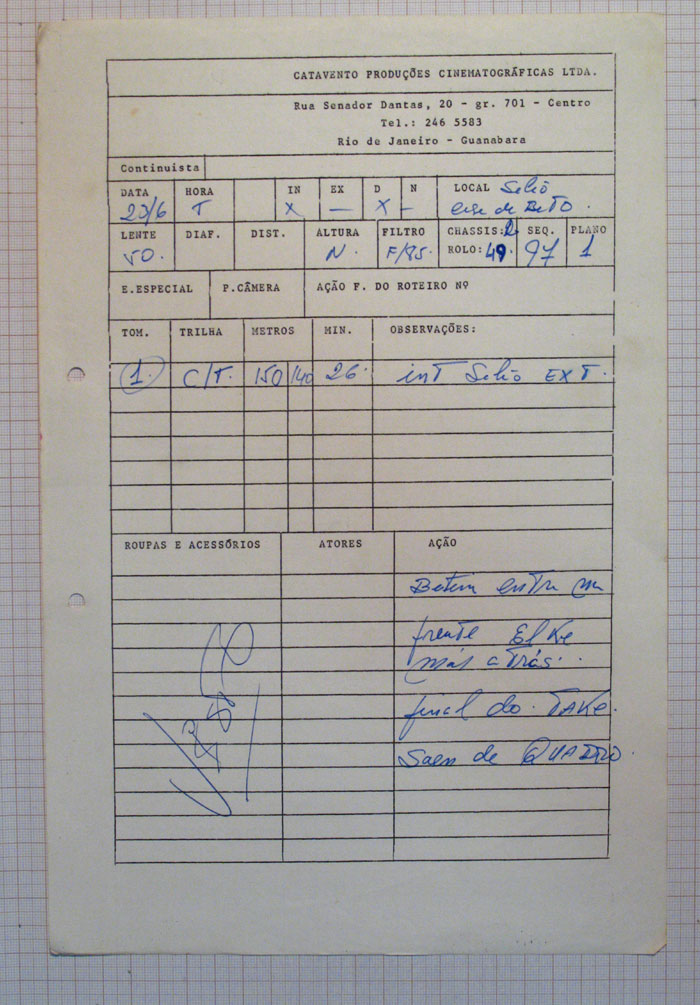 CATAVENTO PRODUÇÕES CINEMATOGRÁFICAS LTDA.
Rua Senador Dantas, 20 - gr. 701 - Centro
Tel.: 246 5583
Rio de Janeiro - Guanabara
Continuista
DATA HORA IN EX D N LOCAL
T X — X –
LENTE DIAF. DIST. ALTURA FILTRO CHASSIS: 2 SEQ. PLANO
50. N. F/85. ROLO: 49 97 1
E.ESPECIAL P.CÂMERA AÇÃO F. DO ROTEIRO Nº
TOM. TRILHA METROS MIN. OBSERVAÇÕES:
1. C/T. 150 140 26. int EXT.
ROUPAS E ACESSÓRIOS ATORES AÇÃO
entra
frente Elke
mais atrás.
final do TAKE.
Saem de QUADRO.